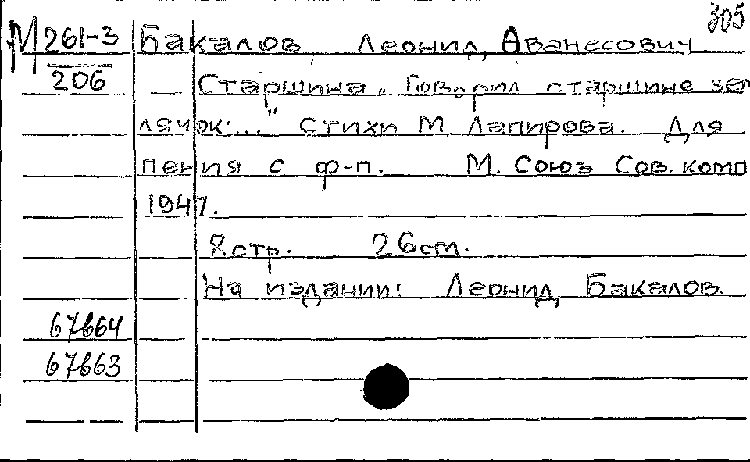 305
М 261-3 Бакалов Леонид, Аванесович
206 — Старшина. "Говорил старшине зем
лячок:..." Стихи М Лапирова. Для
пения с ф-п. М. Союз Сов. комп
1947.
8 стр. 26 cm.
На издании: Леонид, Бакалов.
67664
67663